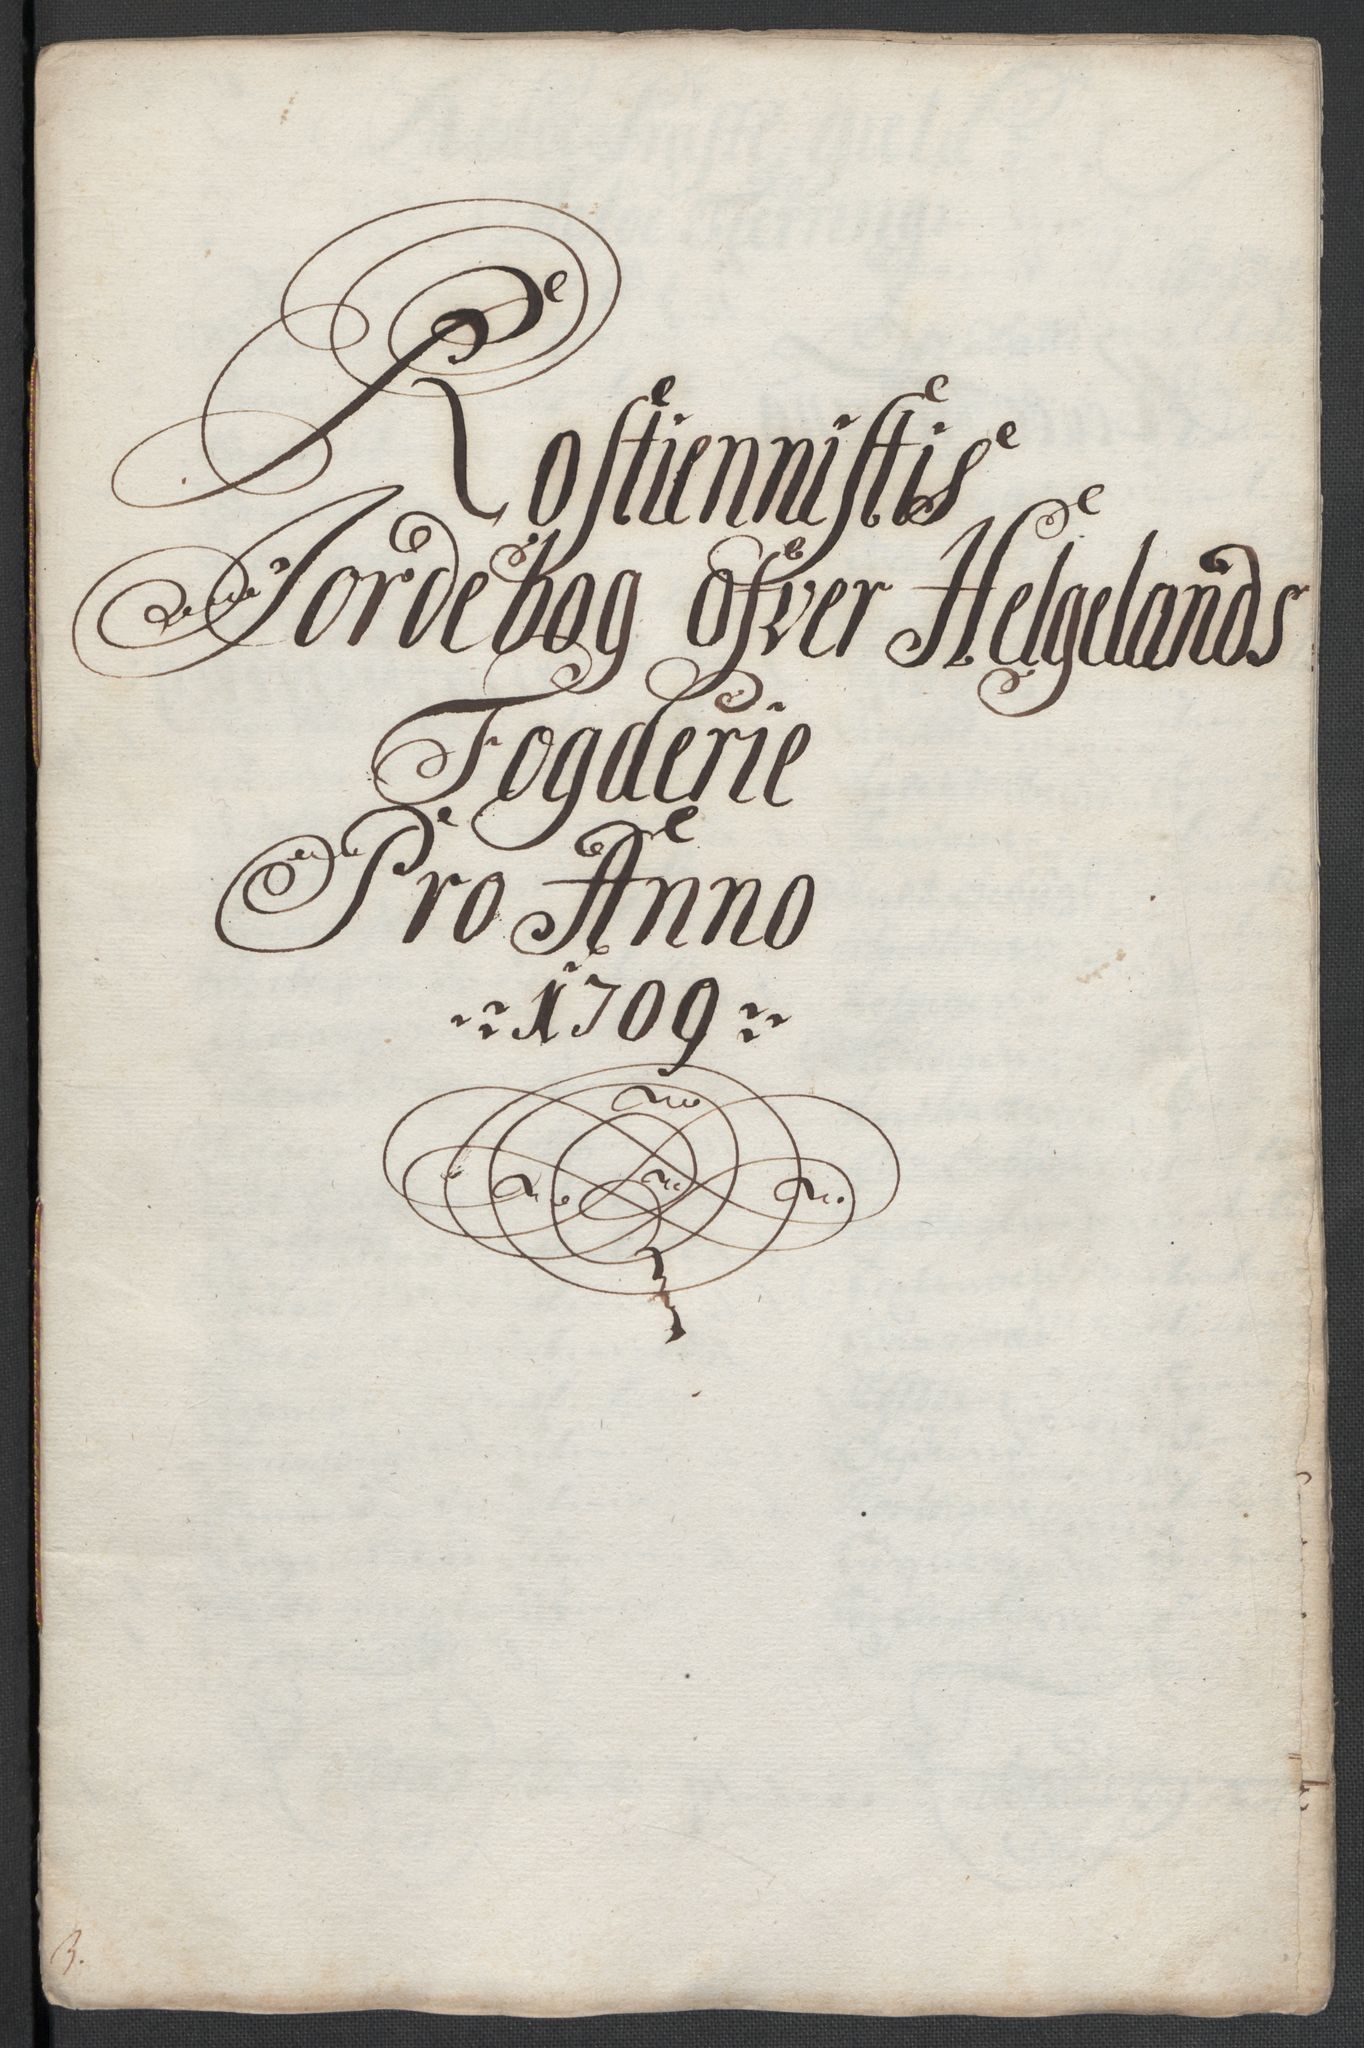 Rostiennistis
Jordebog ofver Helgelands
Fogderie
Pro Anno
1709
3.